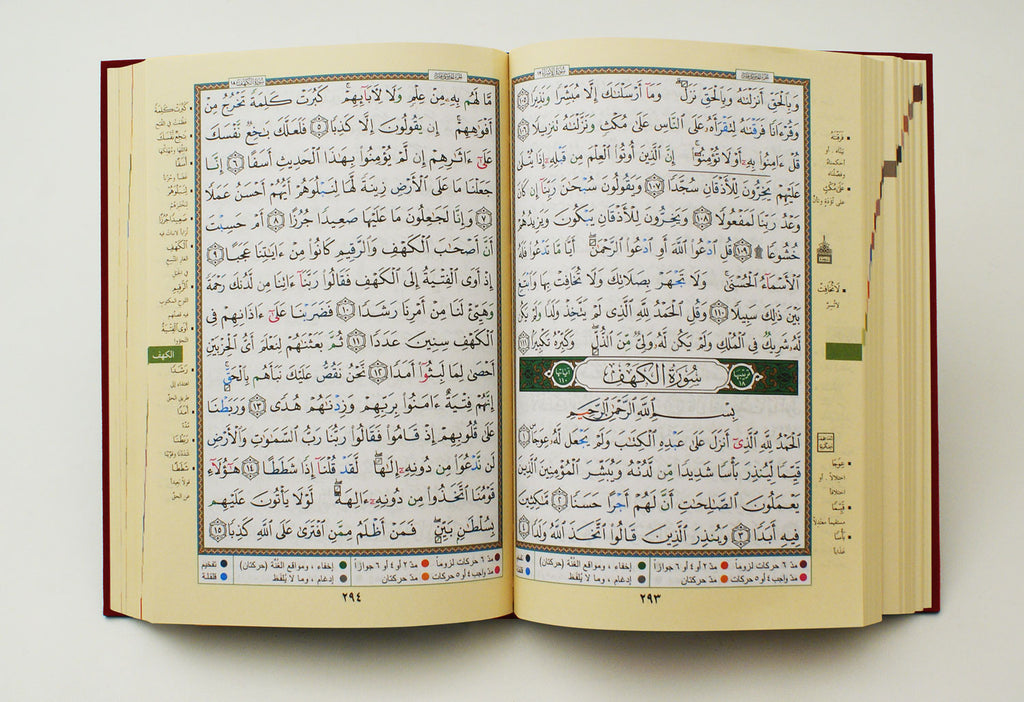 سُورَةُ الإِسۡرَاءِ ١٧
وَبِٱلۡحَقِّ أَنزَلۡنَٰهُ وَبِٱلۡحَقِّ نَزَلَۗ وَمَآ أَرۡسَلۡنَٰكَ إِلَّا مُبَشِّرٗا وَنَذِيرٗا ١٠٥
وَقُرۡءَانٗا فَرَقۡنَٰهُ لِتَقۡرَأَهُۥ عَلَى ٱلنَّاسِ عَلَىٰ مُكۡثٖ وَنَزَّلۡنَٰهُ تَنزِيلٗا ١٠٦
قُلۡ ءَامِنُواْ بِهِۦٓ أَوۡ لَا تُؤۡمِنُوٓاْۚ إِنَّ ٱلَّذِينَ أُوتُواْ ٱلۡعِلۡمَ مِن قَبۡلِهِۦٓ إِذَا يُتۡلَىٰ
عَلَيۡهِمۡ يَخِرُّونَۤ لِلۡأَذۡقَانِۤ سُجَّدٗاۤ ١٠٧ وَيَقُولُونَ سُبۡحَٰنَ رَبِّنَآ إِن كَانَ
وَعۡدُ رَبِّنَا لَمَفۡعُولٗا ١٠٨ وَيَخِرُّونَ لِلۡأَذۡقَانِ يَبۡكُونَ وَيَزِيدُهُمۡ
خُشُوعٗا۩ ١٠٩ قُلِ ٱدۡعُواْ ٱللَّهَ أَوِ ٱدۡعُواْ ٱلرَّحۡمَٰنَۖ أَيّٗا مَّا تَدۡعُواْ فَلَهُ
ٱلۡأَسۡمَآءُ ٱلۡحُسۡنَىٰۚ وَلَا تَجۡهَرۡ بِصَلَاتِكَ وَلَا تُخَافِتۡ بِهَا وَٱبۡتَغِ
بَيۡنَ ذَٰلِكَ سَبِيلٗا ١١٠ وَقُلِ ٱلۡحَمۡدُ لِلَّهِ ٱلَّذِي لَمۡ يَتَّخِذۡ وَلَدٗا وَلَمۡ يَكُن
لَّهُۥ شَرِيكٞ فِي ٱلۡمُلۡكِ وَلَمۡ يَكُن لَّهُۥ وَلِيّٞ مِّنَ ٱلذُّلِّۖ وَكَبِّرۡهُ تَكۡبِيرَۢا ١١١
ترتيبها ١٨ سُورَةُ الكَهۡفِ آياتها ١١٠
بِسۡمِ ٱللَّهِ ٱلرَّحۡمَٰنِ ٱلرَّحِيمِ
ٱلۡحَمۡدُ لِلَّهِ ٱلَّذِيٓ أَنزَلَ عَلَىٰ عَبۡدِهِ ٱلۡكِتَٰبَ وَلَمۡ يَجۡعَل لَّهُۥ عِوَجَاۜ ١
قَيِّمٗا لِّيُنذِرَ بَأۡسٗا شَدِيدٗا مِّن لَّدُنۡهُ وَيُبَشِّرَ ٱلۡمُؤۡمِنِينَ ٱلَّذِينَ
يَعۡمَلُونَ ٱلصَّٰلِحَٰتِ أَنَّ لَهُمۡ أَجۡرًا حَسَنٗا ٢ مَّٰكِثِينَ
فِيهِ أَبَدٗا ٣ وَيُنذِرَ ٱلَّذِينَ قَالُواْ ٱتَّخَذَ ٱللَّهُ وَلَدٗا ٤
مدّ ٦ حركات لزوماً مدّ ٢ أو ٤ أو ٦ جوازاً إخفاء، ومواقع الغُنَّة (حركتان)
مدّ واجب ٤ أو ٥ حركات مدّ حركتان إدغام، وما لا يُلفَظ
٢٩٣
سُورَةُ الكَهۡفِ ١٨
مَّا لَهُم بِهِۦ مِنۡ عِلۡمٖ وَلَا لِأٓبَآئِهِمۡۚ كَبُرَتۡ كَلِمَةٗ تَخۡرُجُ مِنۡ
أَفۡوَٰهِهِمۡۚ إِن يَقُولُونَ إِلَّا كَذِبٗا ٥ فَلَعَلَّكَ بَٰخِعٞ نَّفۡسَكَ
عَلَىٰٓ ءَاثَٰرِهِمۡ إِن لَّمۡ يُؤۡمِنُواْ بِهَٰذَا ٱلۡحَدِيثِ أَسَفًا ٦ إِنَّا
جَعَلۡنَا مَا عَلَى ٱلۡأَرۡضِ زِينَةٗ لَّهَا لِنَبۡلُوَهُمۡ أَيُّهُمۡ أَحۡسَنُ عَمَلٗا
٧ وَإِنَّا لَجَٰعِلُونَ مَا عَلَيۡهَا صَعِيدٗا جُرُزًا ٨ أَمۡ حَسِبۡتَ
أَنَّ أَصۡحَٰبَ ٱلۡكَهۡفِ وَٱلرَّقِيمِ كَانُواْ مِنۡ ءَايَٰتِنَا عَجَبًا ٩
إِذۡ أَوَى ٱلۡفِتۡيَةُ إِلَى ٱلۡكَهۡفِ فَقَالُواْ رَبَّنَآ ءَاتِنَا مِن لَّدُنكَ رَحۡمَةٗ
وَهَيِّئۡ لَنَا مِنۡ أَمۡرِنَا رَشَدٗا ١٠ فَضَرَبۡنَا عَلَىٰٓ ءَاذَانِهِمۡ فِي
ٱلۡكَهۡفِ سِنِينَ عَدَدٗا ١١ ثُمَّ بَعَثۡنَٰهُمۡ لِنَعۡلَمَ أَيُّ ٱلۡحِزۡبَيۡنِ
أَحۡصَىٰ لِمَا لَبِثُوٓاْ أَمَدٗا ١٢ نَّحۡنُ نَقُصُّ عَلَيۡكَ نَبَأَهُم بِٱلۡحَقِّۚ
إِنَّهُمۡ فِتۡيَةٌ ءَامَنُواْ بِرَبِّهِمۡ وَزِدۡنَٰهُمۡ هُدٗى ١٣ وَرَبَطۡنَا
عَلَىٰ قُلُوبِهِمۡ إِذۡ قَامُواْ فَقَالُواْ رَبُّنَا رَبُّ ٱلسَّمَٰوَٰتِ وَٱلۡأَرۡضِ
لَن نَّدۡعُوَاْ مِن دُونِهِۦٓ إِلَٰهٗاۖ لَّقَدۡ قُلۡنَآ إِذٗا شَطَطًا ١٤ هَٰٓؤُلَآءِ
قَوۡمُنَا ٱتَّخَذُواْ مِن دُونِهِۦٓ ءَالِهَةٗۖ لَّوۡلَا يَأۡتُونَ عَلَيۡهِم
بِسُلۡطَٰنِۭ بَيِّنٖۖ فَمَنۡ أَظۡلَمُ مِمَّنِ ٱفۡتَرَىٰ عَلَى ٱللَّهِ كَذِبٗا ١٥
الكهف
مدّ ٦ حركات لزوماً مدّ ٢ أو ٤ أو ٦ جوازاً إخفاء، ومواقع الغُنَّة (حركتان) تفخيم
مدّ واجب ٤ أو ٥ حركات مدّ حركتان إدغام، وما لا يُلفَظ قلقلة
٢٩٤